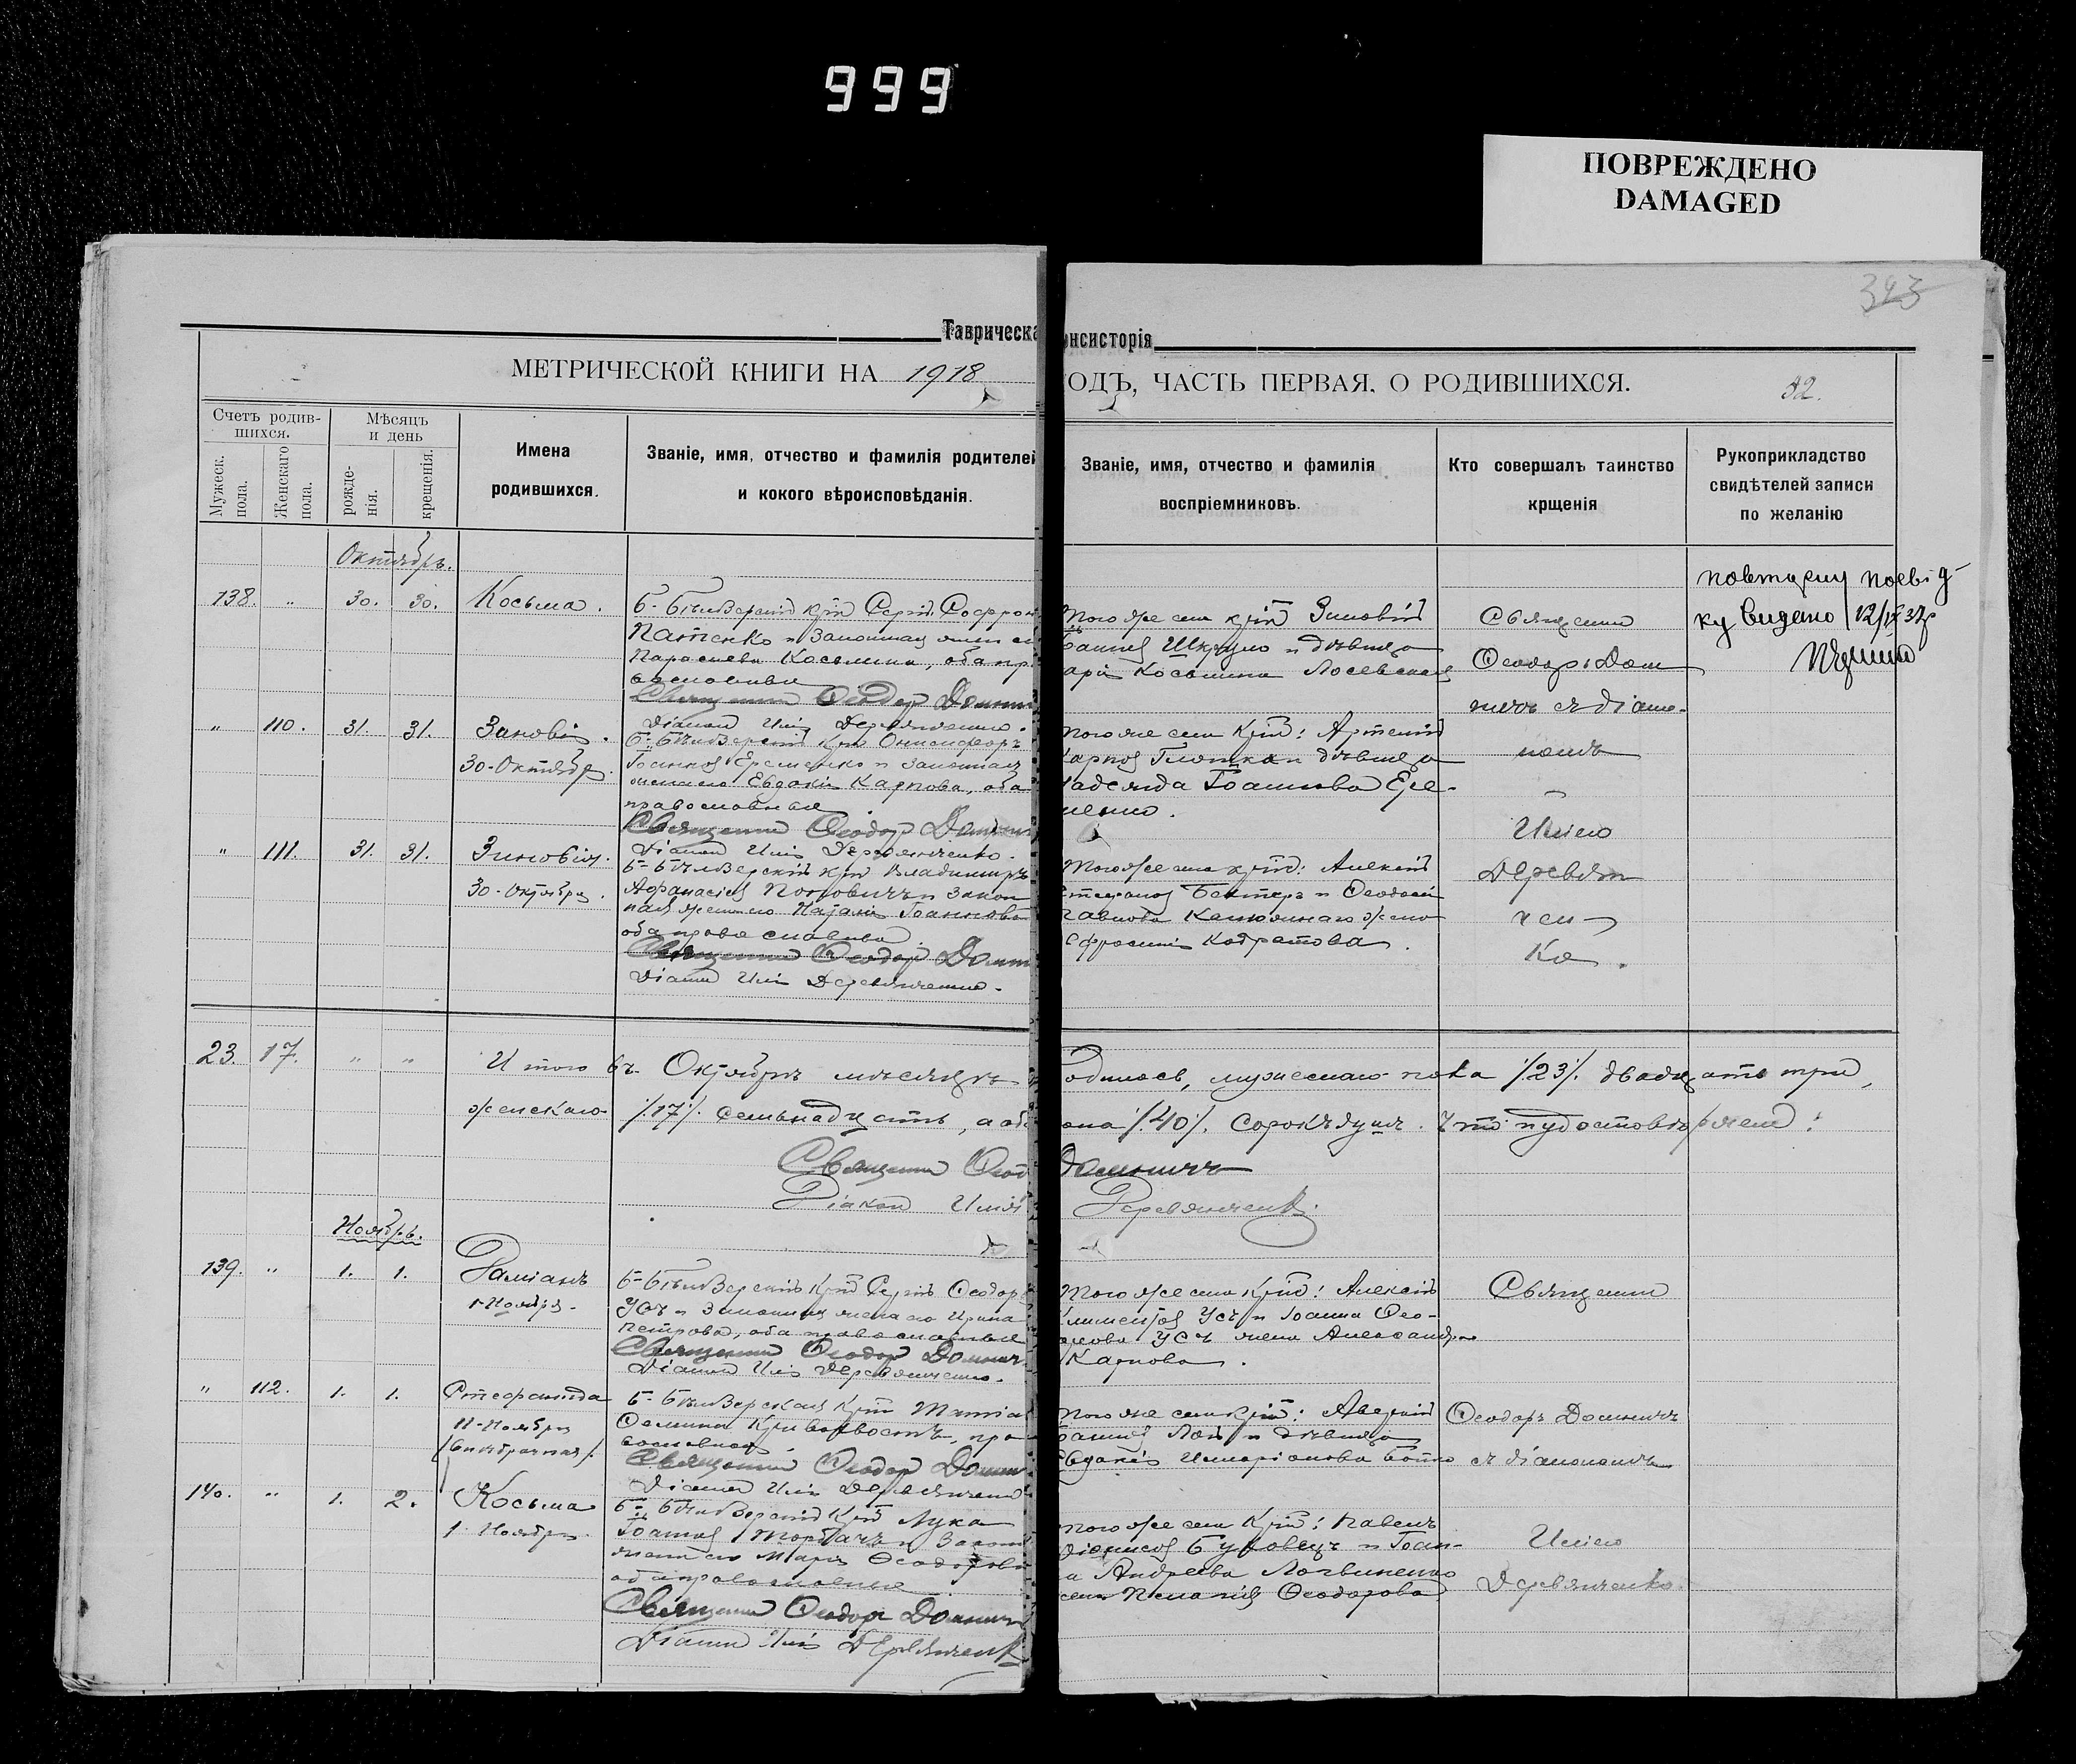 999
ПОВРЕЖДЕНО
DAMAGED
343
Таврическа
онсисторія
МЕТРИЧЕСКОЙ КНИГИ НА 1918
ОДЪ, ЧАСТЬ ПЕРВАЯ, О РОДИВШИХСЯ.
42.
Счетъ родив-
шихся.
Мужеск.
пола.
Женскаго
пола.
Мѣсяцъ
и день
рожде-
нія.
крещенія.
Имена
родившихся.
Званіе, имя, отчество и фамилія родителей
и кокого вѣроисповѣданія.
Званіе, имя, отчество и фамилія
воспріемниковъ.
Кто совершалъ таинство
крщенія
Рукоприкладство
свидѣтелей записи
по желанію
Октябрь.
138. " 30. 30. Косьма.
Б-Бѣлозерскій крт Сергій Софрон
Патенко и законная жена его
Параскева Косьмина, оба пр
вославные
Священник Ѳеодор Домни
Діакон Илія Деревянченко.
того же села кр Зиновій
Іаннов Шкрумо и дѣвица
арія Косьмина Лосевская
Священник
Ѳеодоръ Дом
ничъ съ діако-
номъ
Иліею
Деревян
чен
ко.
повторну посвід-
ку видано
" 110. 31. 31. Зановія.
30-Октября.
Б-Бѣлозерскій крт Онисифоръ
Іоаннов Еременко и законная
жена его Евдокія Карпова, оба
православные
Священник Ѳеодор Домнич
Діакон Илія Деревянченко.
того же села Крт: Артемій
Карпов и дѣвица
адежда Іоаннова Ере-
менко.
" 111. 31. 31. Зиновія.
30-Октября.
Б-Бѣлозерскій крт Владимиръ
Афанасіев Поповичъ и закон
ная жена его Наталія Іоаннова
оба православные
Священник Ѳеодор Домни
Діакон Илія Деревянченко.
того же села крт: Алексій
тефанов Бехтеръ и Ѳеодосій
жена
Ефросинія Кодратова.
23. 17. " " Итого въ Октябрѣ мѣсяцѣ
одилось, мужескаго пола /23/. двадцать три,
женскаго /17/. семьнадцать, а об
ола /40/. Сорокъ душъ. Что и удостовѣряем:
Священник Ѳеод
Домничъ
Діакон Илія
Деревянченко.
Ноябрь.
139. " 1. 1. Даміанъ
1-Ноября.
Б-Бѣлозерскій Крт Сергій Ѳеодор
Усъ и законная жена его Ирина
Петрова, оба православные
Священник Ѳеодор Домнич
Діакон Илія Деревянченко.
того же села Крт: Алексій
Климентов Усъ и Іоанна Ѳео-
Усъ жена Александра
Карпова.
Священник
" 112. 1. 1. Стефанида
11-Ноября
/внѣбрачная/.
Б-Бѣлозерская Крт
Ѳомина Кривохвостъ, пра
вославная
Священник Ѳеодор Домни
Діакон Илія Деревянченко
того же села крт: Аверкій
и дѣвица
Евдокія Бойко
Ѳеодоръ Домничъ
съ діакономъ
140. " 1. 2. Косьма
1. Ноября.
Б-Бѣлозерскій Крт Лука
Іоаннов Торбачъ и закон
жена его Марія Ѳеодорова
оба православные
Священник Ѳеодор Домнич
Діакон Илія Деревянченко
того же села Крт: Павелъ
Діонисов Буховецъ и Іоан-
а Андреева Логвиненко
жена Пелагія Ѳеодорова
Иліею
Деревянченко.